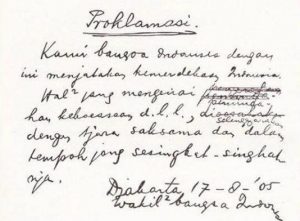 Proklamasi.
Kami bangsa Indonesia dengan
ini menjatakan kemerdekaan Indonesia.
Hal² jang mengenai
kekoeasaan d.l.l.,
dengan tjara saksama dan dalam
tempoh jang sesingkat-singkat
nja.
Djakarta 17-8-'05
Wakil² bangsa